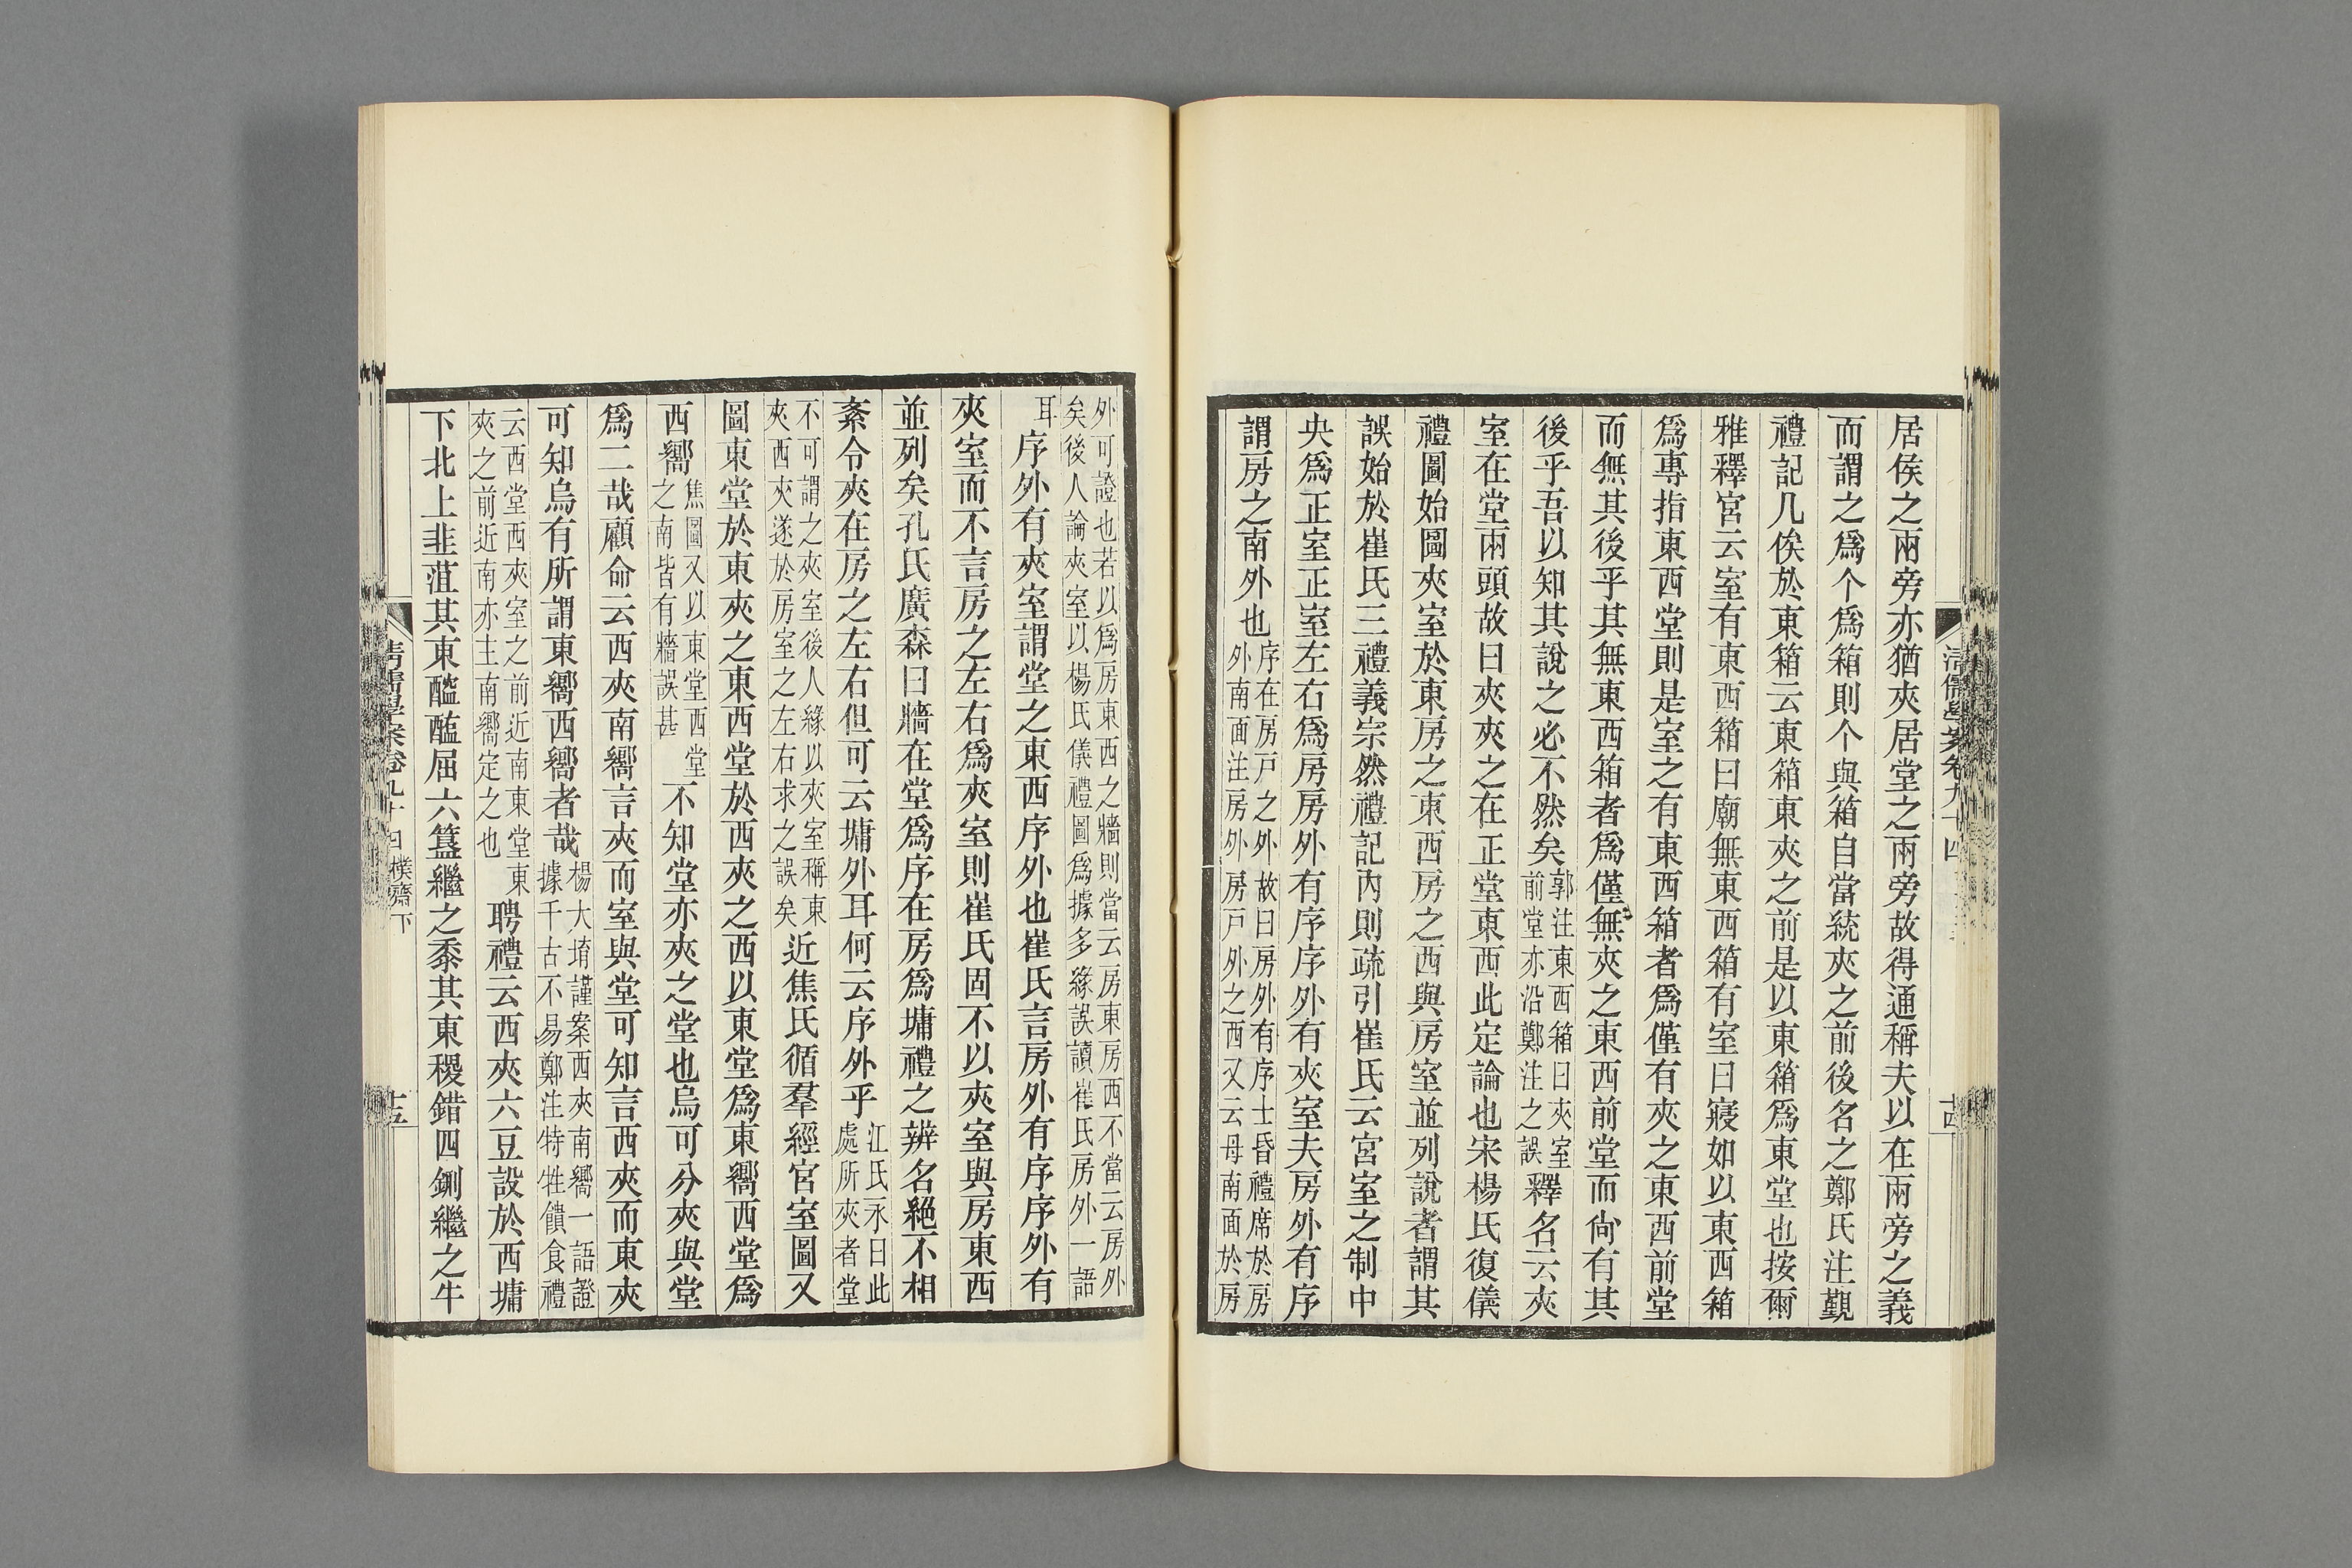 居侯之兩旁亦猶夾居堂之兩旁故得通稱夫以在兩旁之義
而謂之爲个爲箱則个與箱自當統夾之前後名之鄭氏注覲
禮記几俟於東箱云東箱東夾之前是以東箱爲東堂也按爾
雅釋宮云室有東西箱曰廟無東西箱有室曰寢如以東西箱
爲專指東西堂則是室之有東西箱者爲僅有夾之東西前堂
而無其後乎其無東西箱者爲僅無夾之東西前堂而尙有其
後乎吾以知其說之必不然矣郭注東西箱曰夾室前堂亦沿鄭注之誤釋名云夾
室在堂兩頭故曰夾夾之在正堂東西此定論也宋楊氏復儀
禮圖始圖夾室於東房之東西房之西與房室並列說者謂其
誤始於崔氏三禮義宗然禮記內則疏引崔氏云宮室之制中
央爲正室正室左右爲房房外有序序外有夾室夫房外有序
謂房之南外也序在房戸之外故曰房外有序士昏禮席於房外南面注房外房戸外之西又云母南面於房
清儒學案卷九十四
十四
外可證也若以爲房東西之牆則當云房東房西不當云房外
矣後人論夾室以楊氏儀禮圖爲據多緣誤讀崔氏房外一語
耳序外有夾室謂堂之東西序外也崔氏言房外有序序外有
夾室而不言房之左右爲夾室則崔氏固不以夾室與房東西
並列矣孔氏廣森曰牆在堂爲序在房爲墉禮之辨名絕不相
紊令夾在房之左右但可云墉外耳何云序外乎江氏永曰此處所夾者堂
不可謂之夾室後人緣以夾室稱東夾西夾遂於房室之左右求之誤矣近焦氏循羣經宮室圖又
圖東堂於東夾之東西堂於西夾之西以東堂爲東嚮西堂爲
西嚮焦圖又以東堂西堂之南皆有牆誤甚不知堂亦夾之堂也烏可分夾與堂
爲二哉顧命云西夾南嚮言夾而室與堂可知言西夾而東夾
可知烏有所謂東嚮西嚮者哉楊大堉謹案西夾南嚮一語證據千古不易鄭注特牲饋食禮
云西堂西夾室之前近南東堂東夾之前近南亦主南嚮定之也聘禮云西夾六豆設於西墉
下北上韭菹其東醓醢屈六簋繼之黍其東稷錯四鉶繼之牛
清儒學案卷九十四 樸齋下
十五